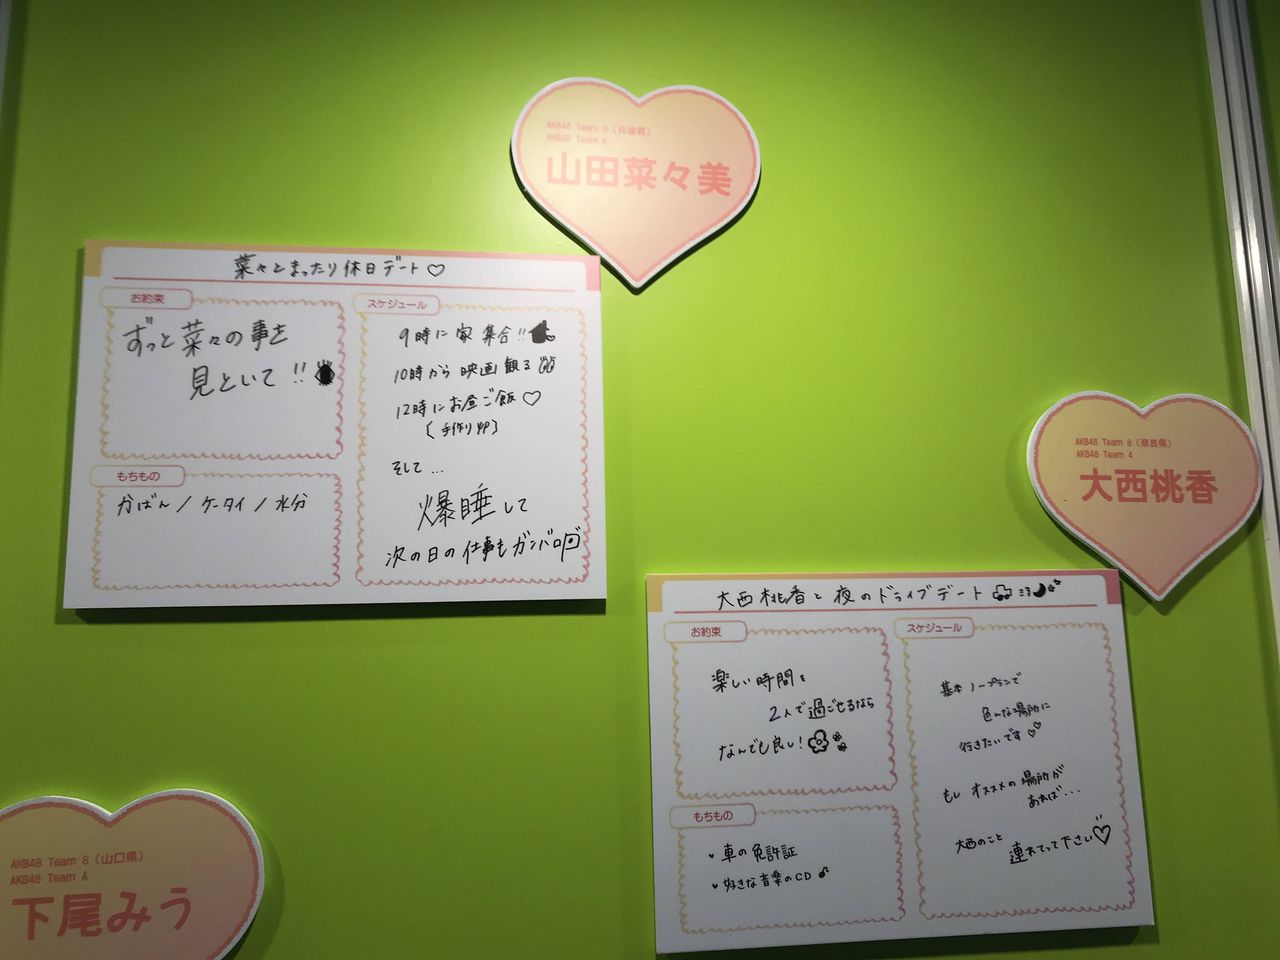 AKB48 Team 8（兵庫県）
AKB48 Team K
山田菜々美
菜々とまったり休日デート♡
お約束
ずっと菜々の事を
見といて!!
もちもの
かばん/ケータイ/水分
スケジュール
9時に家集合!!
10時から映画観る
12時にお昼ご飯♡
(手作り)
そして...
爆睡して
次の日の仕事もガンバロ
AKB48 Team 8（奈良県）
AKB48 Team 4
大西桃香
大西桃香と夜のドライブデート
お約束
楽しい時間を
2人で過ごせるなら
なんでも良い!
もちもの
・車の免許証
・好きな音楽のCD♪
スケジュール
基本ノープランで
色んな場所に
行きたいです♡♡
もしオススメの場所が
あれば...
大西のこと
連れてって下さい♡
AKB48 Team 8（山口県）
AKB48 Team A
下尾みう